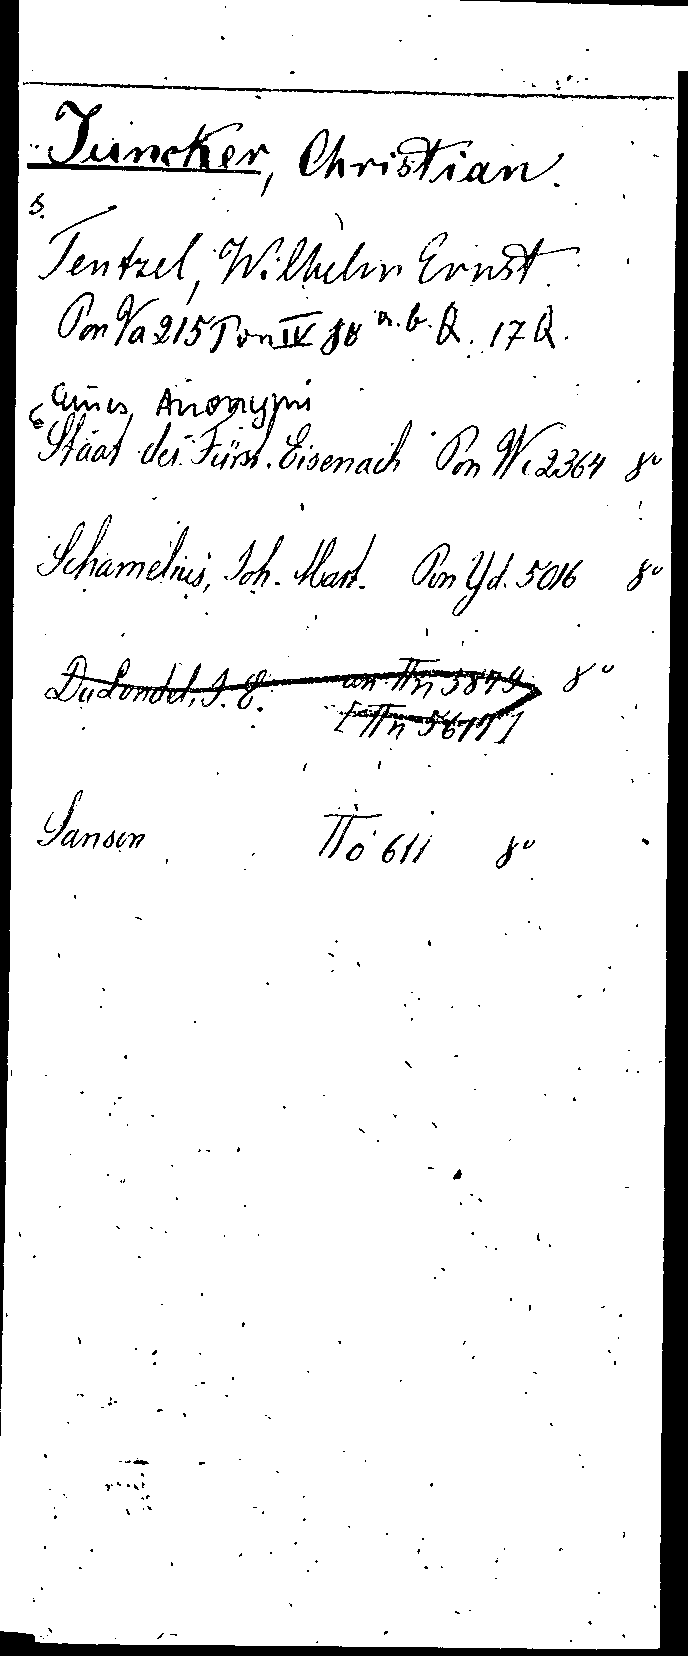 Juncker, Christian.
s.
Tentzel, Wilhelm Ernst
Pon Va 215 Pon IV 80 a.b. Q. 17 Q.
Eines Anonymi
Staat des Fürst. Eisenach Pon We 2364 8°
Schamelius, Joh. Mart. Pon Yd. 5016 8°
Du Londel, J. E. an TTn 5879 8°
[TTn 5677]
Sanson TTo 611 8°